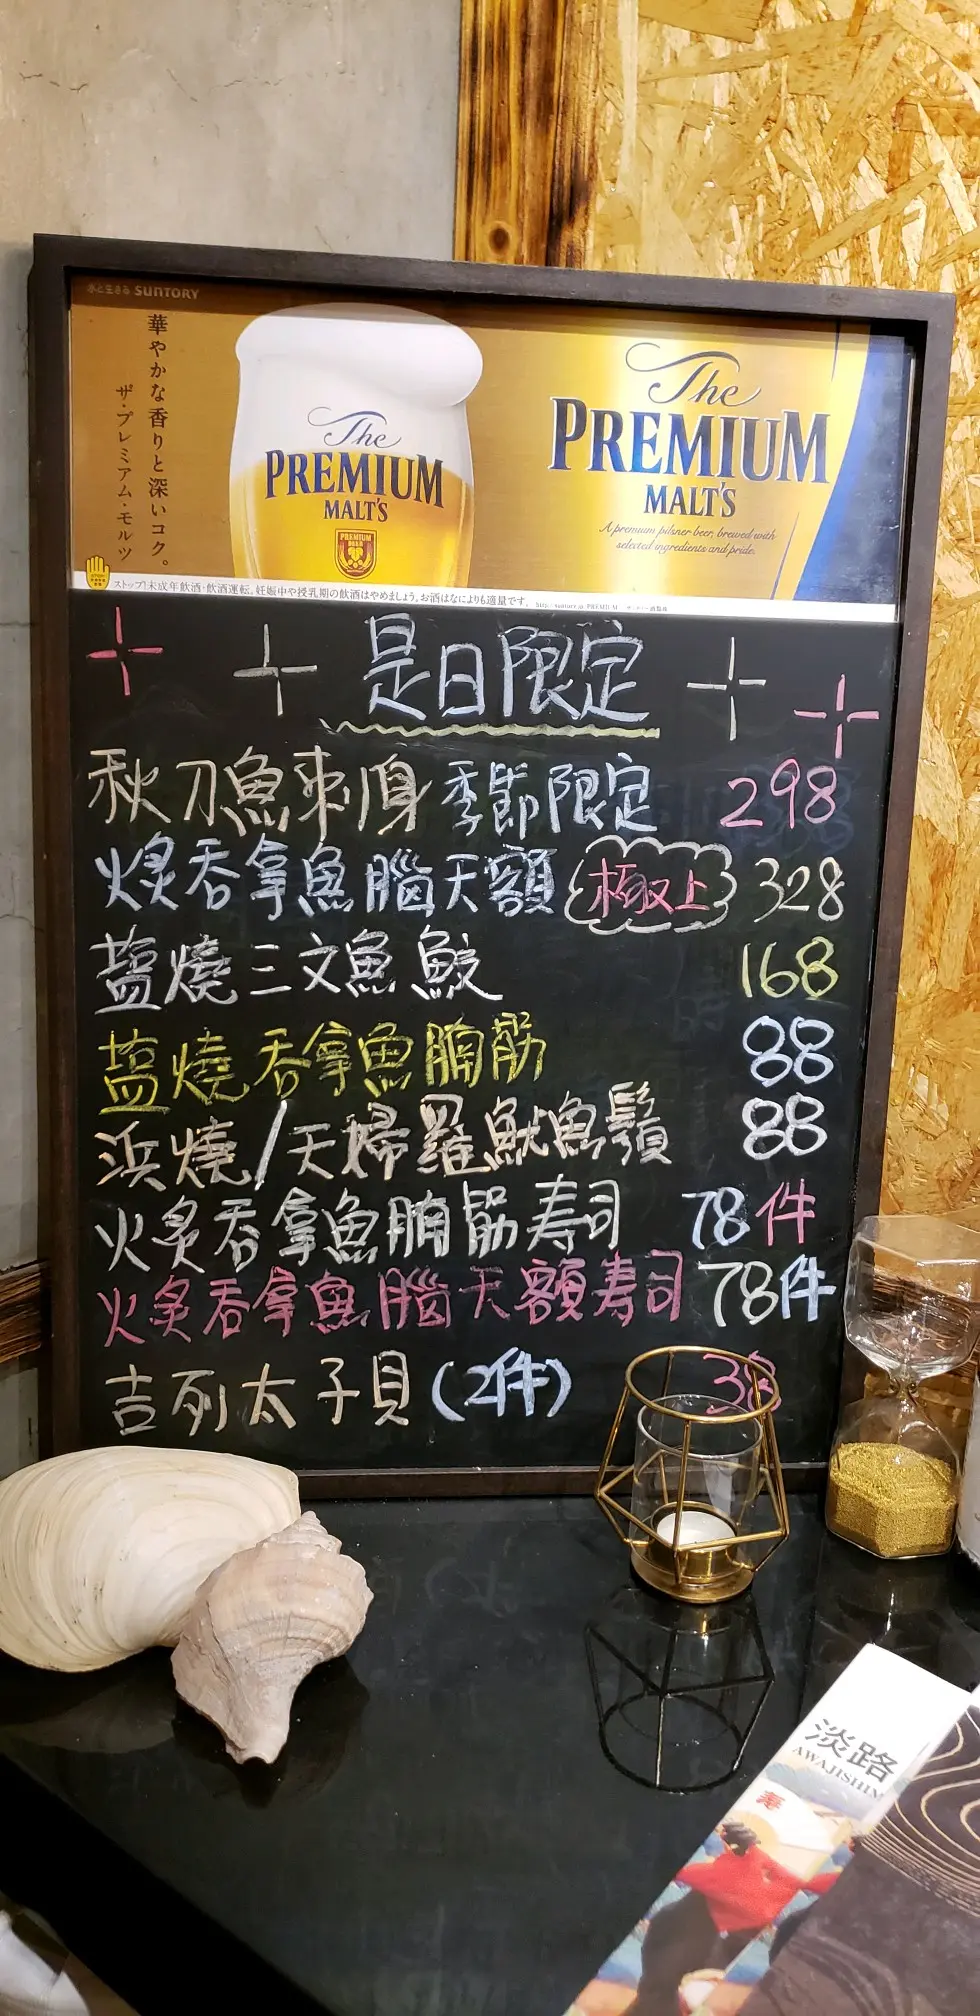 水と生きる SUNTORY
華やかな香りと深いコク。
ザ・プレミアム・モルツ
The
PREMIUM
MALT'S
PREMIUM
BEER
The
PREMIUM
MALT'S
A premium pilsner beer, brewed with
selected ingredients and pride.
ストップ!未成年飲酒・飲酒運転。妊娠中や授乳期の飲酒はやめましょう。お酒はなによりも適量です。
是日限定
秋刀魚刺身 季節限定 298
炙吞拿魚腦天額 極上 328
塩燒三文魚鮫 168
塩燒吞拿魚腩筋 88
浜燒/天婦羅魷魚鬚 88
火炙吞拿魚腩筋寿司 78件
火炙吞拿魚腦天額寿司 78件
吉列太子貝(2件) 38
淡路
AWAJISHIM
寿